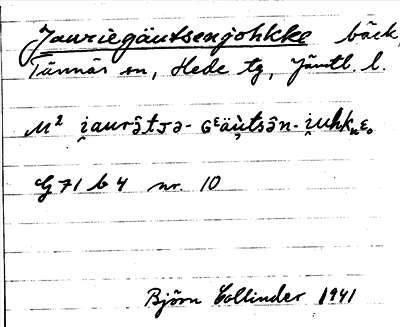 Jauriegäutsenjohkke bäck,
Tännäs sn, Hede tg, Jämtl. l.
M² i̯aurə̑tᴊə- ɢᵋäu̯tsə̑n- i̯uhkᵤɛ̥
G 71 b 4 nr. 10
Björn Collinder 1941